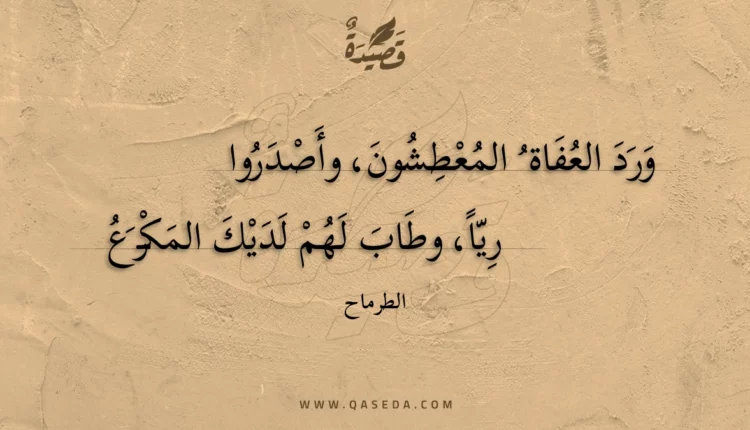 قَصِيدَةٌ
وَرَدَ العُفَاة ُ المُعْطِشُونَ، وأَصْدَرُوا
رِيّاً، وطَابَ لَهُمْ لَدَيْكَ المَكْرَعُ
الطرماح
WWW.QASEDA.COM